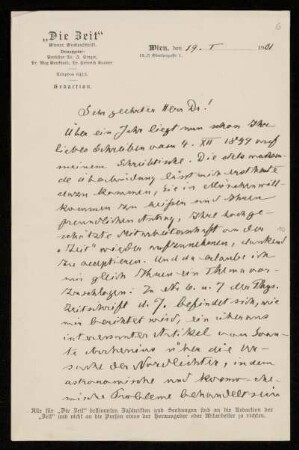 6
„Die Zeit“
Wiener Wochenschrift.
Herausgeber:
Professor Dr. I. Singer,
Dr. Max Burckhard, Dr. Heinrich Kanner.
Telephon 6415.
Redaction.
Wien, den 19. I 1901
IX/3 Günthergasse 1.
Sehr geehrter Herr Dr.!
Über ein Jahr liegt nun schon Ihr
liebes Schreiben vom 4. XII 1899 auf
meinem Schreibtische. Die
de Überbürdung lässt mich erst heute
dazu kommen, Sie in willkommen
zu heißen und Ihren
freundlichen Antrag, Ihre hochge-
schätzte Mitarbeiterschaft an der
„Zeit“ wieder aufzunehmen, dankend
zu acceptieren. Und da erlaube ich
mir gleich Ihnen ein Thema vor-
zuschlagen: In No. 6 u. 7 der Phys.
Zeitschrift d. J. befindet sich, wie
mir berichtet wird, ein überaus
interessanter Artikel von Svan-
te Arrhenius über die Ur-
sache der Nordlichter, in dem
astronomische und kosmo-che-
mische Probleme behandelt sein
Alle für „Die Zeit“ bestimmten Zuschriften und Sendungen sind an die Redaction der
„Zeit“ und nicht an die Person eines der Herausgeber oder Mitarbeiter zu richten.